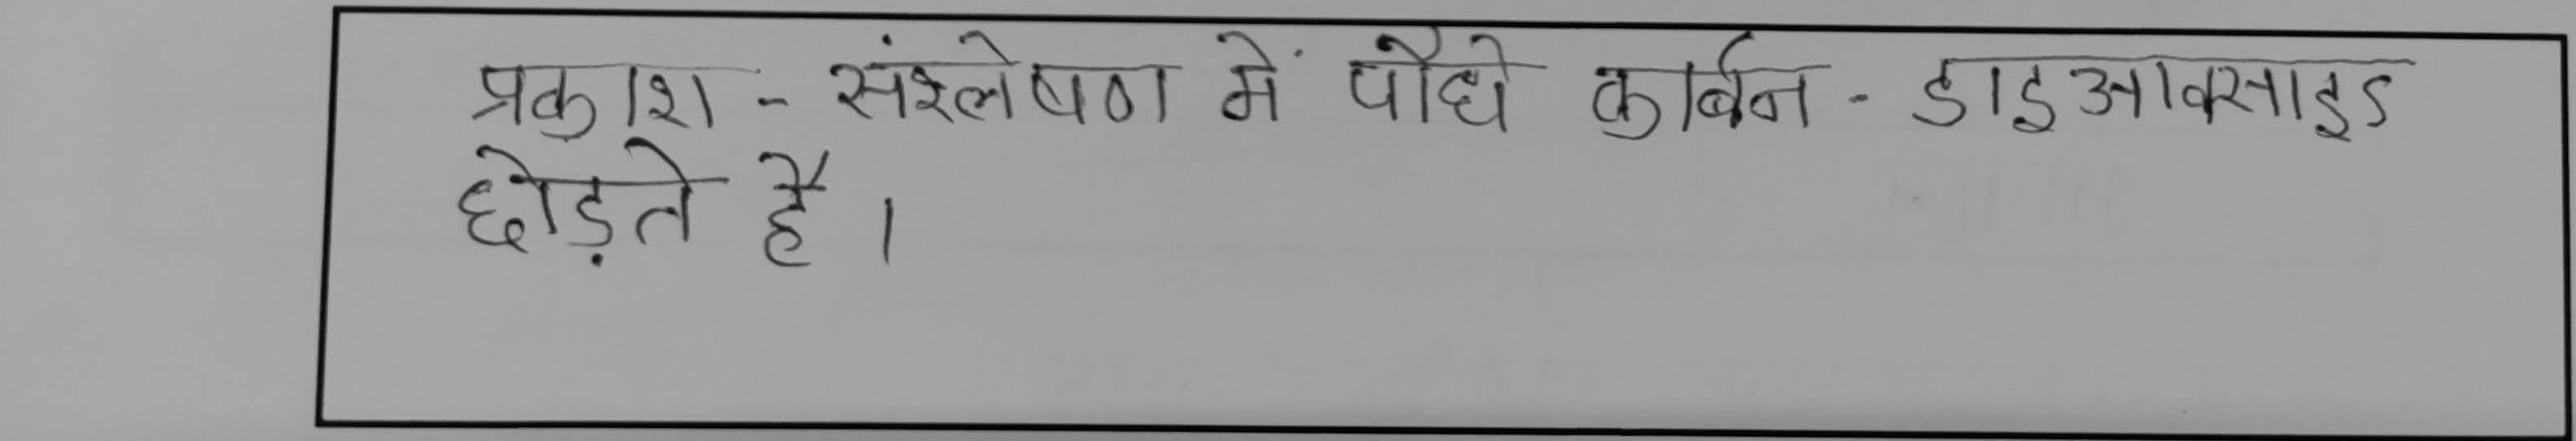 प्रकाश - संश्लेषण में पौधे कार्बन - डाइआक्साइड
छोड़ते हैं ।